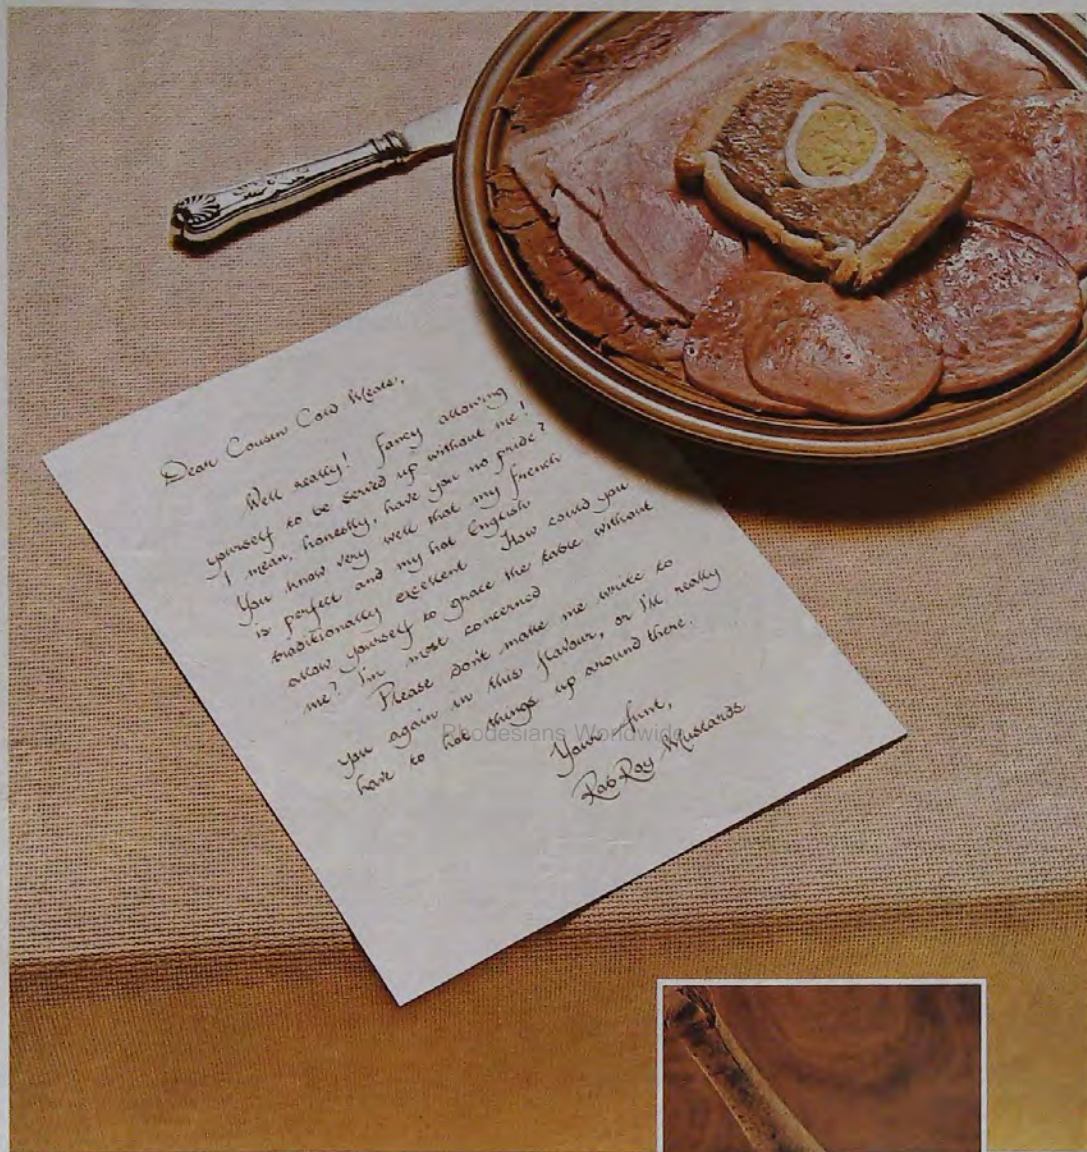 Dear Cousin Cold Meats,
Well really! Fancy allowing
yourself to be served up without me!
I mean, honestly, have you no pride?
You know very well that my French
is perfect and my hot English
traditionally excellent. How could you
allow yourself to grace the table without
me? I'm most concerned
Please don't make me write to
you again in this flavour, or I'll really
have to hot things up around there.
Your Aunt,
Rab Roy Mustards
Rhodesians Worldwide